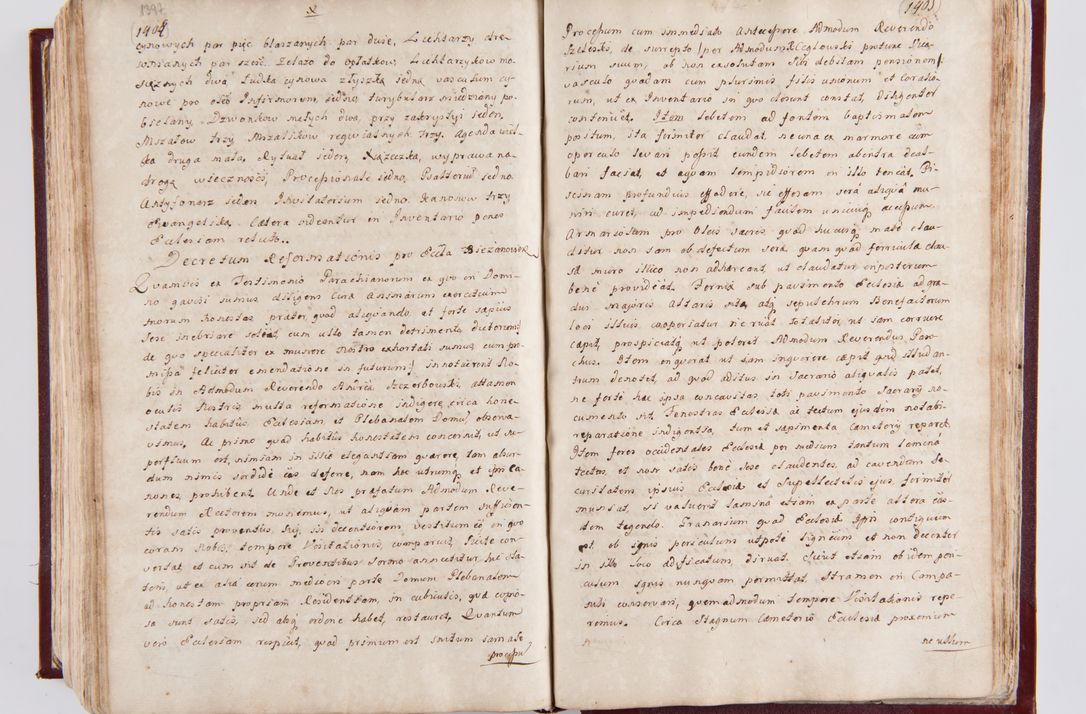 1397
(1404
cynowych par pięc blaszanych par duie, Lichtarzy dre
wnianych par szesć. Zelazo do opłatkow, Lichtarzykow mo
siężnych dwa łudka cynowa złyszką jedna vasculum cy
nowe pro oleo Infirmorum, jedno, turybularz miedziany po
bielany. Dzwonkow małych dwa, przy zakrystyi jeden,
Mszałow trzy Mszalikow requialnych trzy, Agenda wiel
ka druga mała, Rytuał jeden, Xążeczka, wyprawa na
drogę wieczności, Processionale jedno, Psalterium jedno
Antyfonarz jeden Invitatorium jedno. Kanonow trzy
Ewangeliką. Cætera videantur in Inventario penes
Ecclesiam relicto..
Decretum Reformationis pro Ecclia Biezanowska
Quamvis ex Testimonio Parochianorum ex quo in Domi
no gavisi sumus diligens Cura Animarum exercitium
morum honestas præter, quod aliquando, et forte sæpius
sese inebriare soleat, cum ullo tamen detrimento dictorum
de quo specialiter ex munere Nostro exhortati sumus cum pro
missa feliciter emendatione in futurum) innotuerit No
bis in Admodum Reverendo Andrea Szczerbowski, attamen
oculis Nostris multa reformatione indigere, circa hone
statem habitus Ecclesiam et Plebanalem Domum observa
vimus, Ac primo quod habitus honestatem concernit, ut su
perfluum est, nimiam in illis elegantiam quærere, tam absur
dum nimis sordide eas deferre, nam hoc utrumq et ipsi Ca
nones prohibent. Unde et Nos præfatum Admodum Reve
rendum Rectorem monemus, ut aliquam partem sufficien
tis satis proventus sui, sis decentiorem vestitum eo in quo
coram Nobis, tempore Visitationis, comparuit, scite con
vertat et cum sit de Proventibus sermo annectitur hic Sta
tem, ut ex alia eorum mediocri parte Domum Plebanalem
ad honestam propriam Residentiam, in cubiculis, quæ copio
sa sunt satis, sed absq ordine habet, restauret. Quantum
vero Ecclesiam respicit, quod primum est initium jam ale
præcipu
(1405
Procepum cum immediato Antecessore Admodum Reverendo
Szeleski, de surrepto (per Admodum R Ceglowski protunc Vica
rium suum, ob non exolutam sibi debitam pensionem)
vasculo quodam cum plurimis filis unionum et Corallo
rum, ut ex Inventario in quo desunt constat, diligenter
conveniet. Item lebetem ad fontem baptismalem
positum, ita firmiter claudat ne una ex marmore cum
operculo levari possit eundem lebetem ab intra deal
bari faciat, et aquam limpidiorem in illo teneat, Pi
scinam profundius effodere, sic effosam sera aliqua mu
niri curet, ad impediendum facilem unicuiq accessum.
Armariolum pro Oleis sacris quod hucusq male clau
ditur non tam ob defectum seræ quam quod ferricula clau
sa muro illico non adhæreant, ut claudatur imposterum
bene provideat. Fornix sub pavimento Ecclesiæ ad gra
dus majoris Altaris sita, atq sepulchrum Benefactorum
loci illius, cooperiatur ne ruat totaliter, ut jam corruere
cæpit, prospiciatq ut poterit Admodum Reverendus Paro
chus. Item inquirat ut jam inquirere cæpit quid illud an
trum denotet, ad quod aditus in Sacrario aliqualis patet,
ne forte hæc ipsa concavitas toti pavimento Sacrarij no
cumento sit. Fenestras Ecclesiæ ac tectum ejusdem notabili
reparatione indigentia, tum et sapimenta Cæmeterij reparet.
Item fores occidentales Ecclesiæ per medium tantum lamina
tectas, et non satis bene sese claudentes, ad cavendam se
curitatem ipsius Ecclesiæ et Supellectilis ejus, firmiter
muniat, si valuerit lamina etiam ex parte altera eas
dem tegendo. Granarium quod Ecclesiæ Ipsi contiguum
est, ob ignis periculum utpote ligneum et non decenter
in illo loco ædificatum, diruat. Sicut etiam ob idem peri
culum ignis nunquam permittat, Stramen in Campa
nili conservari, quemadmodum tempore Visitationis repe
rimus. Circa Stagnum Cæmeterio Ecclesiæ proximum
ne ullum